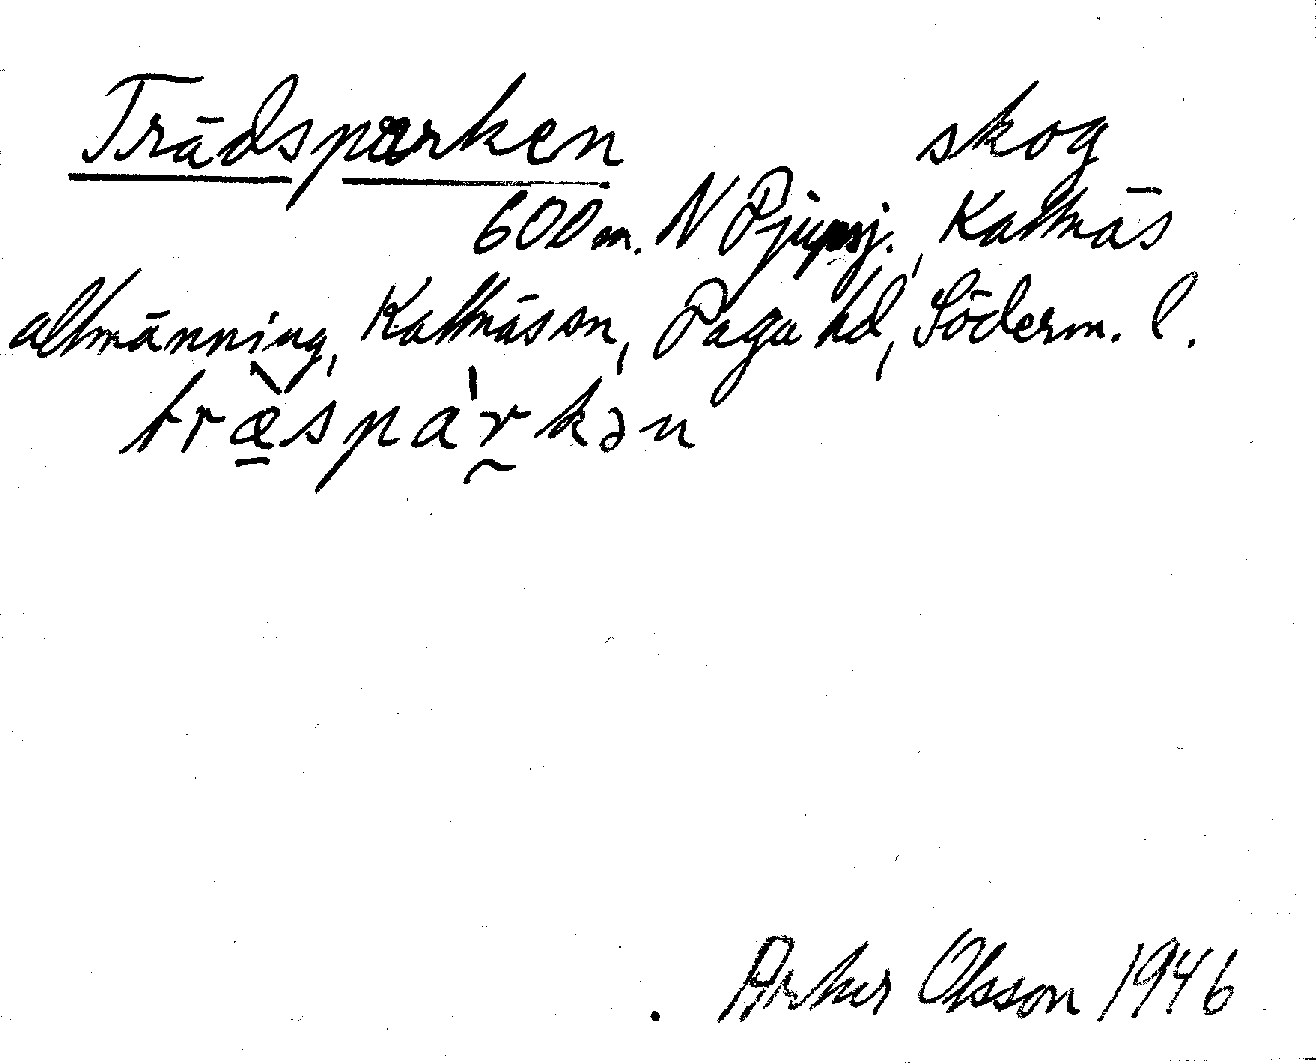 Trädsparken skog
600 m. N Djupsj., Kattnäs
allmänning, Kattnäs sn, Daga hd, Söderm. l.
træ̀spárkən
Arthur Olsson 1946